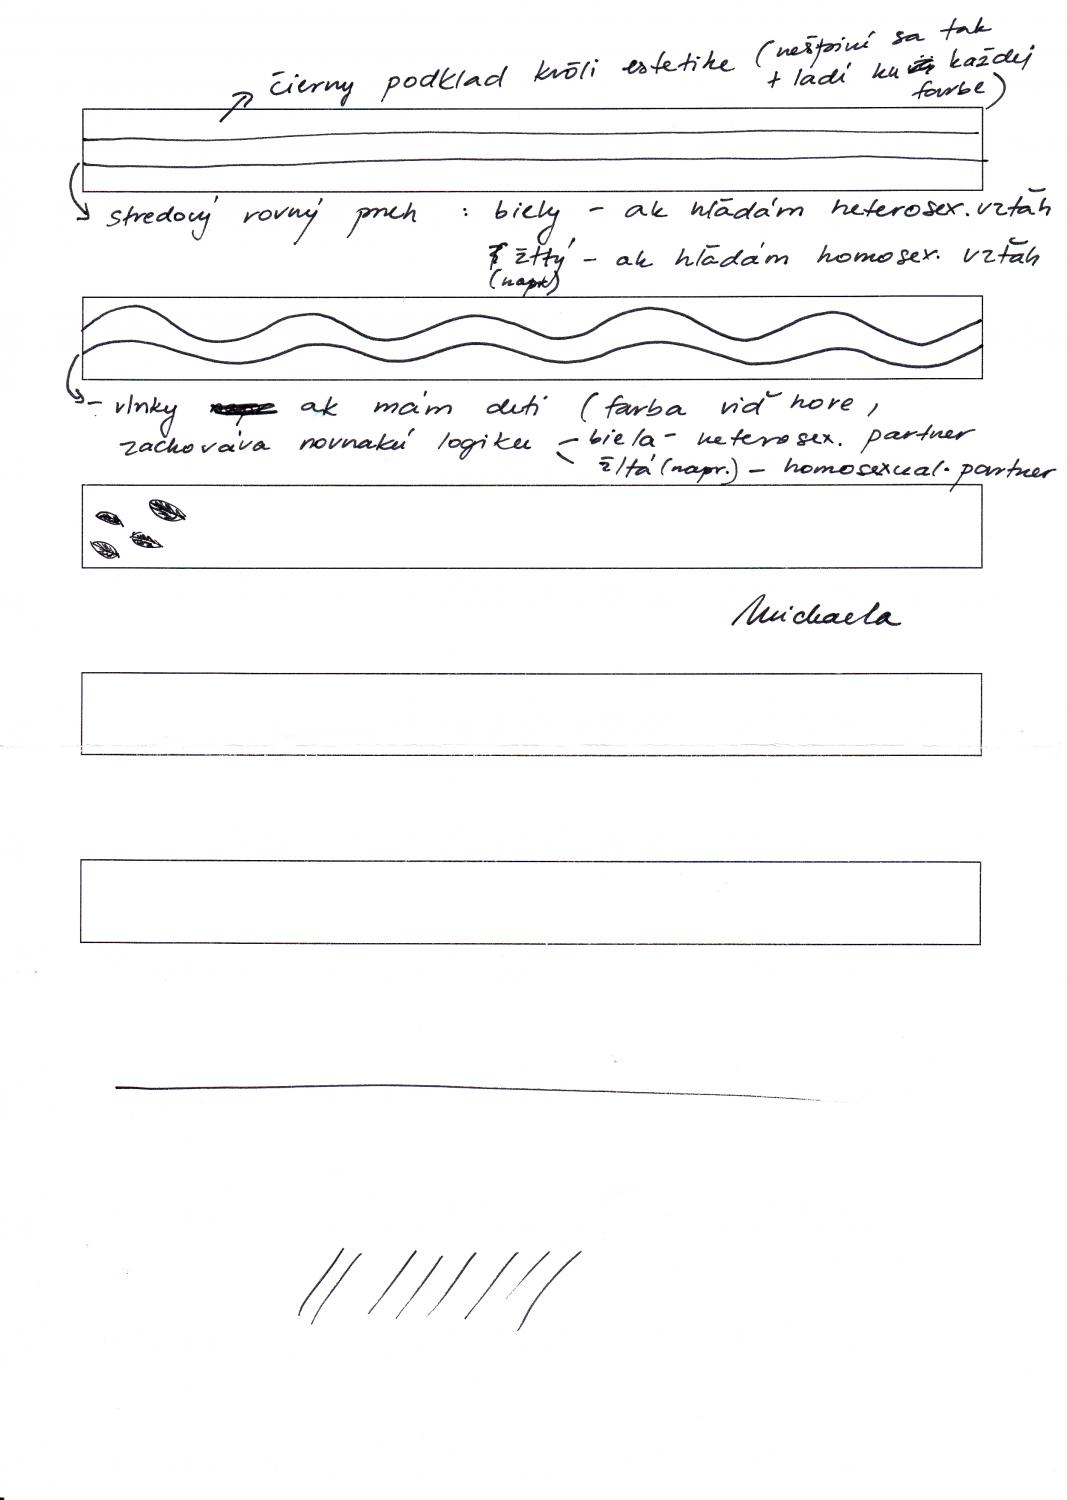 čierny podklad kvôli estetike (nešpiní sa tak
+ ladí ku každej
farbe)
stredový rovný pruh : biely – ak hľadám heterosex. vzťah
žltý – ak hľadám homosex. vzťah
(napr.)
– vlnky ak mám deti (farba viď hore,
zachováva rovnakú logiku – biela – heterosex. partner
– žltá (napr.) – homosexual. partner
Michaela